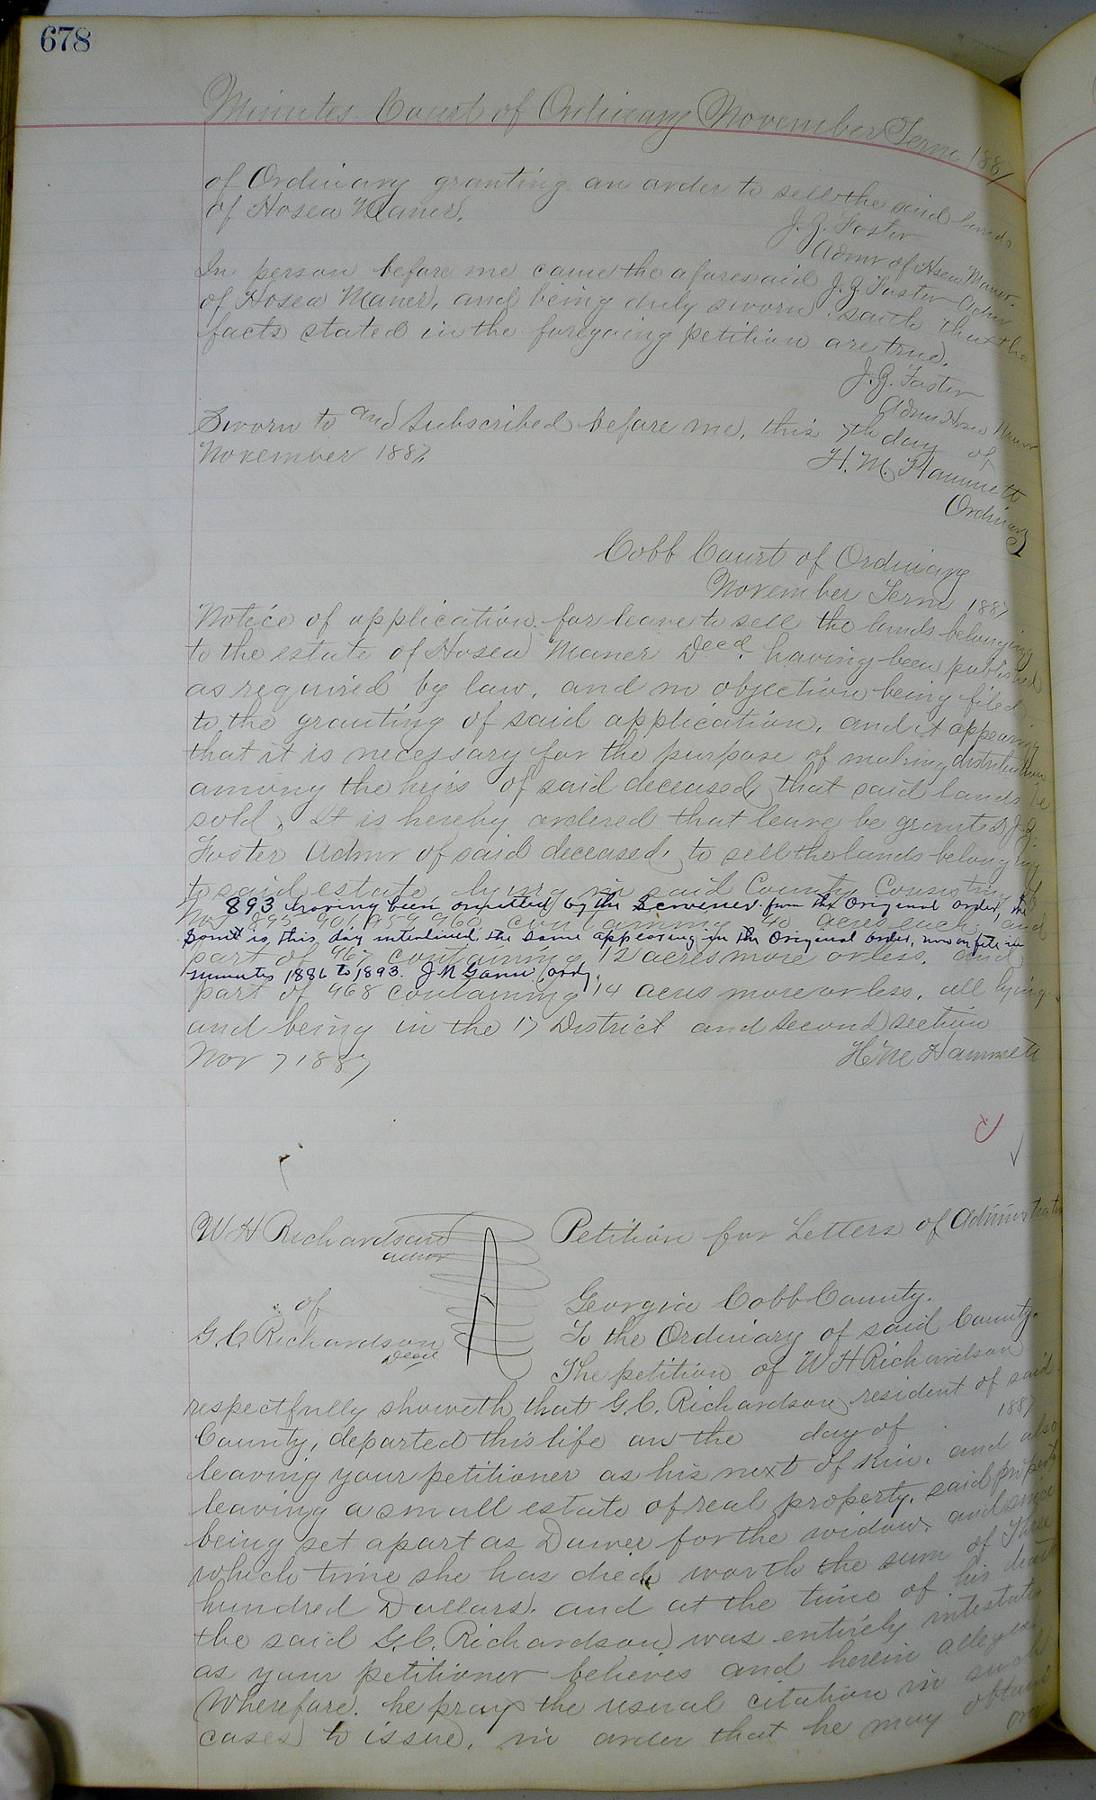 678
Minutes Court of Ordinary November Term 1887
of Ordinary granting an order to sell the said lands
of Hosea Maner.
J. G. Foster
Admr of Hosea Maner.
In person before me came the aforesaid J. G. Foster Admr
of Hosea Maner, and being duly sworn, saith that the
facts stated in the foregoing petition are true.
J. G. Foster
Admr Hosea Maner
Sworn to and Subscribed before me, this 7th day of
November 1887.
H. M. Hammett
Ordinary
Cobb Court of Ordinary
November Term 1887
Notice of application for leave to sell the lands belonging
to the estate of Hosea Maner Decd. having been published
as required by law, and no objection being filed
to the granting of said application, and it appearing
that it is necessary for the purpose of making distribution
among the heirs of said deceased, that said lands be
sold, It is hereby ordered that leave be granted J. G.
Foster Admr of said deceased, to sell the lands belonging
to said estate lying in said County Consisting of
893 having been omitted by the Scrivener from the Original order, the
Nos 895 901 959 960 containing 40 acres each, and
Same is, this day interlined, the Same appearing in the Original order, now on file in
part of 967 containing 12 acres more or less, and
minutes 1886 to 1893. J N Gann Ordy
part of 968 containing 14 acres more or less, all lying
and being in the 17 District and Second Section
Nov 7 1887 H M Hammett
W H Richardson Petition for Letters of Administration
admr
of Georgia Cobb County.
G. C. Richardson To the Ordinary of said County.
Decd The petition of W H Richardson
respectfully showeth that G. C. Richardson resident of said
County, departed this life on the day of 1887
leaving your petitioner as his next of kin. and also
leaving a small estate of real property. said property
being set apart as Dower for the widow. and since
which time she has died worth the sum of Three
hundred Dollars. and at the time of his death
the said G. C. Richardson was entirely intestate
as your petitioner believes and herein alleges
Wherefore. he prays the usual citation in such
cases to issue, in order that he may obtain